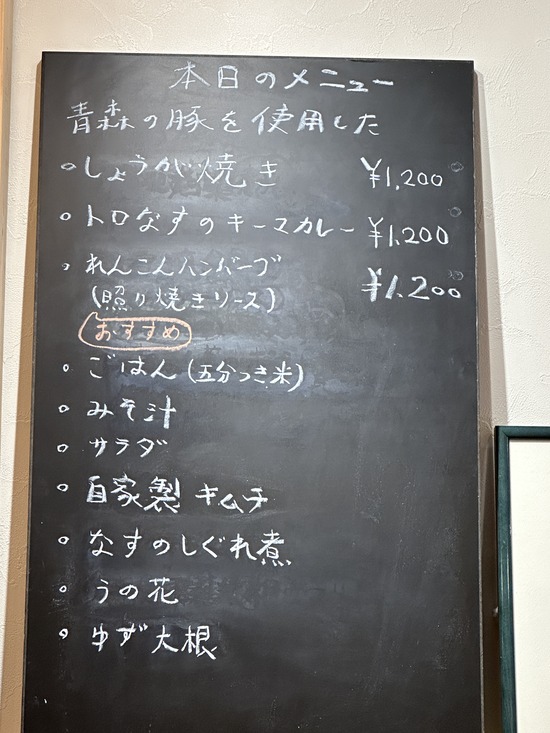 本日のメニュー
青森の豚を使用した
◦しょうが焼き ¥1,200
◦トロなすのキーマカレー ¥1,200
◦れんこんハンバーグ ¥1,200
(照り焼きソース)
おすすめ
◦ごはん(五分つき米)
◦みそ汁
◦サラダ
◦自家製キムチ
◦なすのしぐれ煮
◦うの花
◦ゆず大根